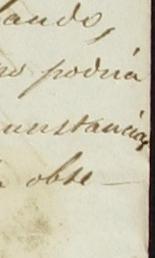 ando,
podria
unstancias
obse-